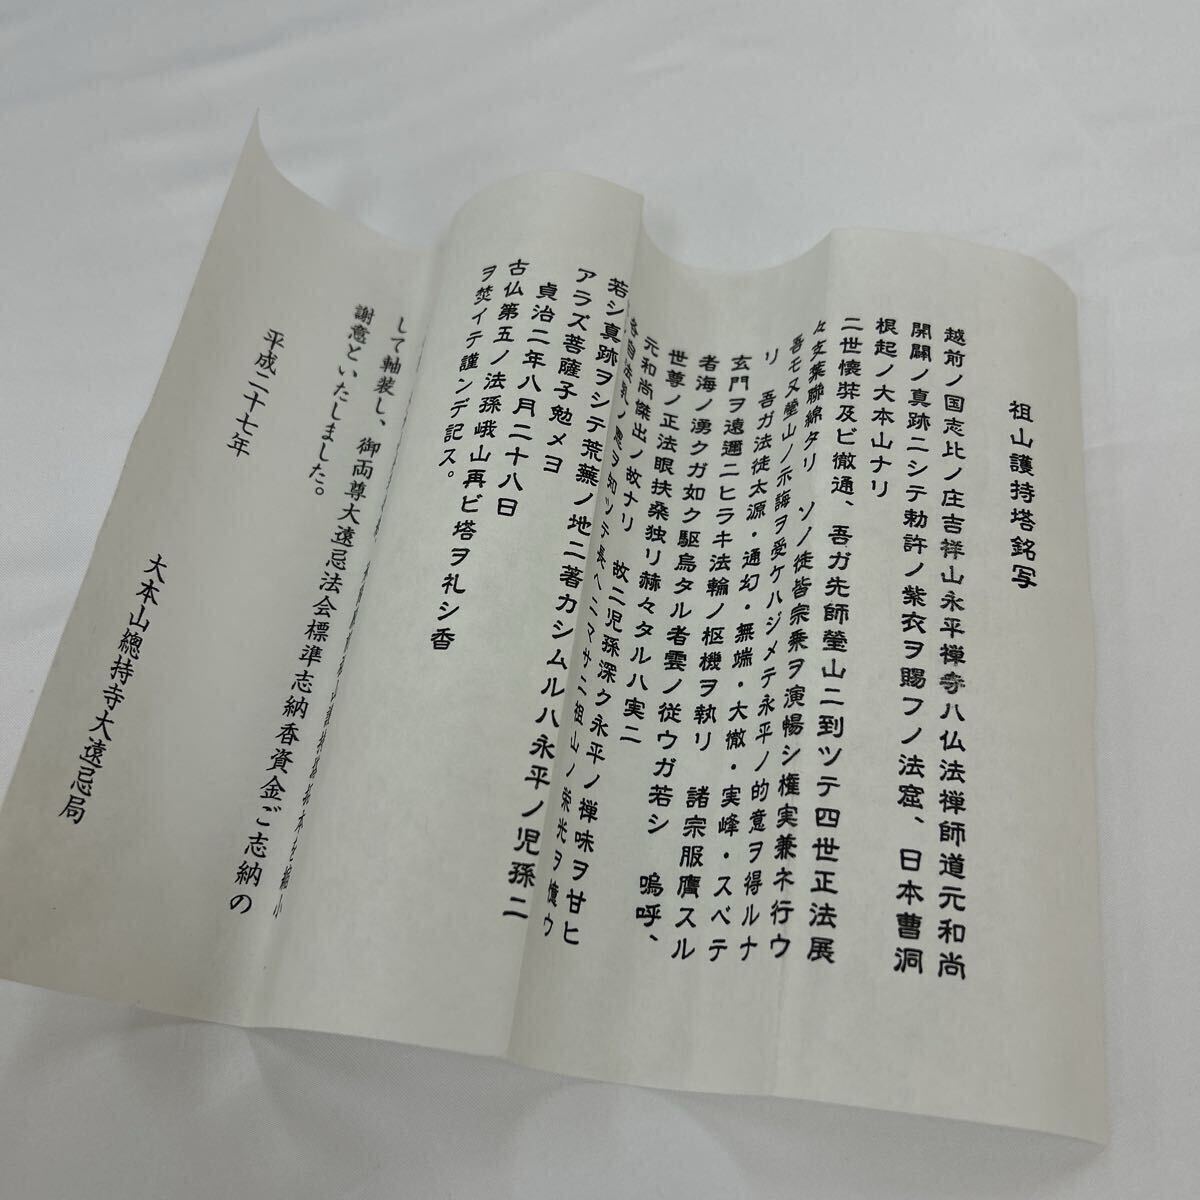 祖山護持塔銘写
越前ノ国志比ノ庄吉祥山永平禅寺ハ仏法禅師道元和尚
開闢ノ真跡ニシテ勅許ノ紫衣ヲ賜フノ法窟、日本曹洞
根起ノ大本山ナリ
二世懐弉及ビ徹通、吾ガ先師瑩山ニ到ツテ四世正法展
々支葉聯綿タリ ソノ徒皆宗乗ヲ演暢シ権実兼ネ行ウ
吾モ又瑩山ノ示誨ヲ受ケハジメテ永平ノ的意ヲ得ルナ
リ 吾ガ法徒太源・通幻・無端・大徹・実峰・スベテ
玄門ヲ遠邇ニヒラキ法輪ノ枢機ヲ執リ 諸宗服膺スル
者海ノ湧クガ如ク駆烏タル者雲ノ従ウガ若シ 嗚呼、
世尊ノ正法眼扶桑独リ赫々タルハ実ニ
元和尚傑出ノ故ナリ 故ニ児孫深ク永平ノ禅味ヲ甘ヒ
各自法乳ノ恩ヲ知ツテ長ヘニマサニ祖山ノ栄光ヲ憶ウ
若シ真跡ヲシテ荒蕪ノ地ニ著カシムルハ永平ノ児孫ニ
アラズ菩薩子勉メヨ
貞治二年八月二十八日
古仏第五ノ法孫峨山再ビ塔ヲ礼シ香
ヲ焚イテ謹ンデ記ス。
して軸装し、御両尊大遠忌法会標準志納香資金ご志納の
謝意といたしました。
平成二十七年
大本山總持寺大遠忌局